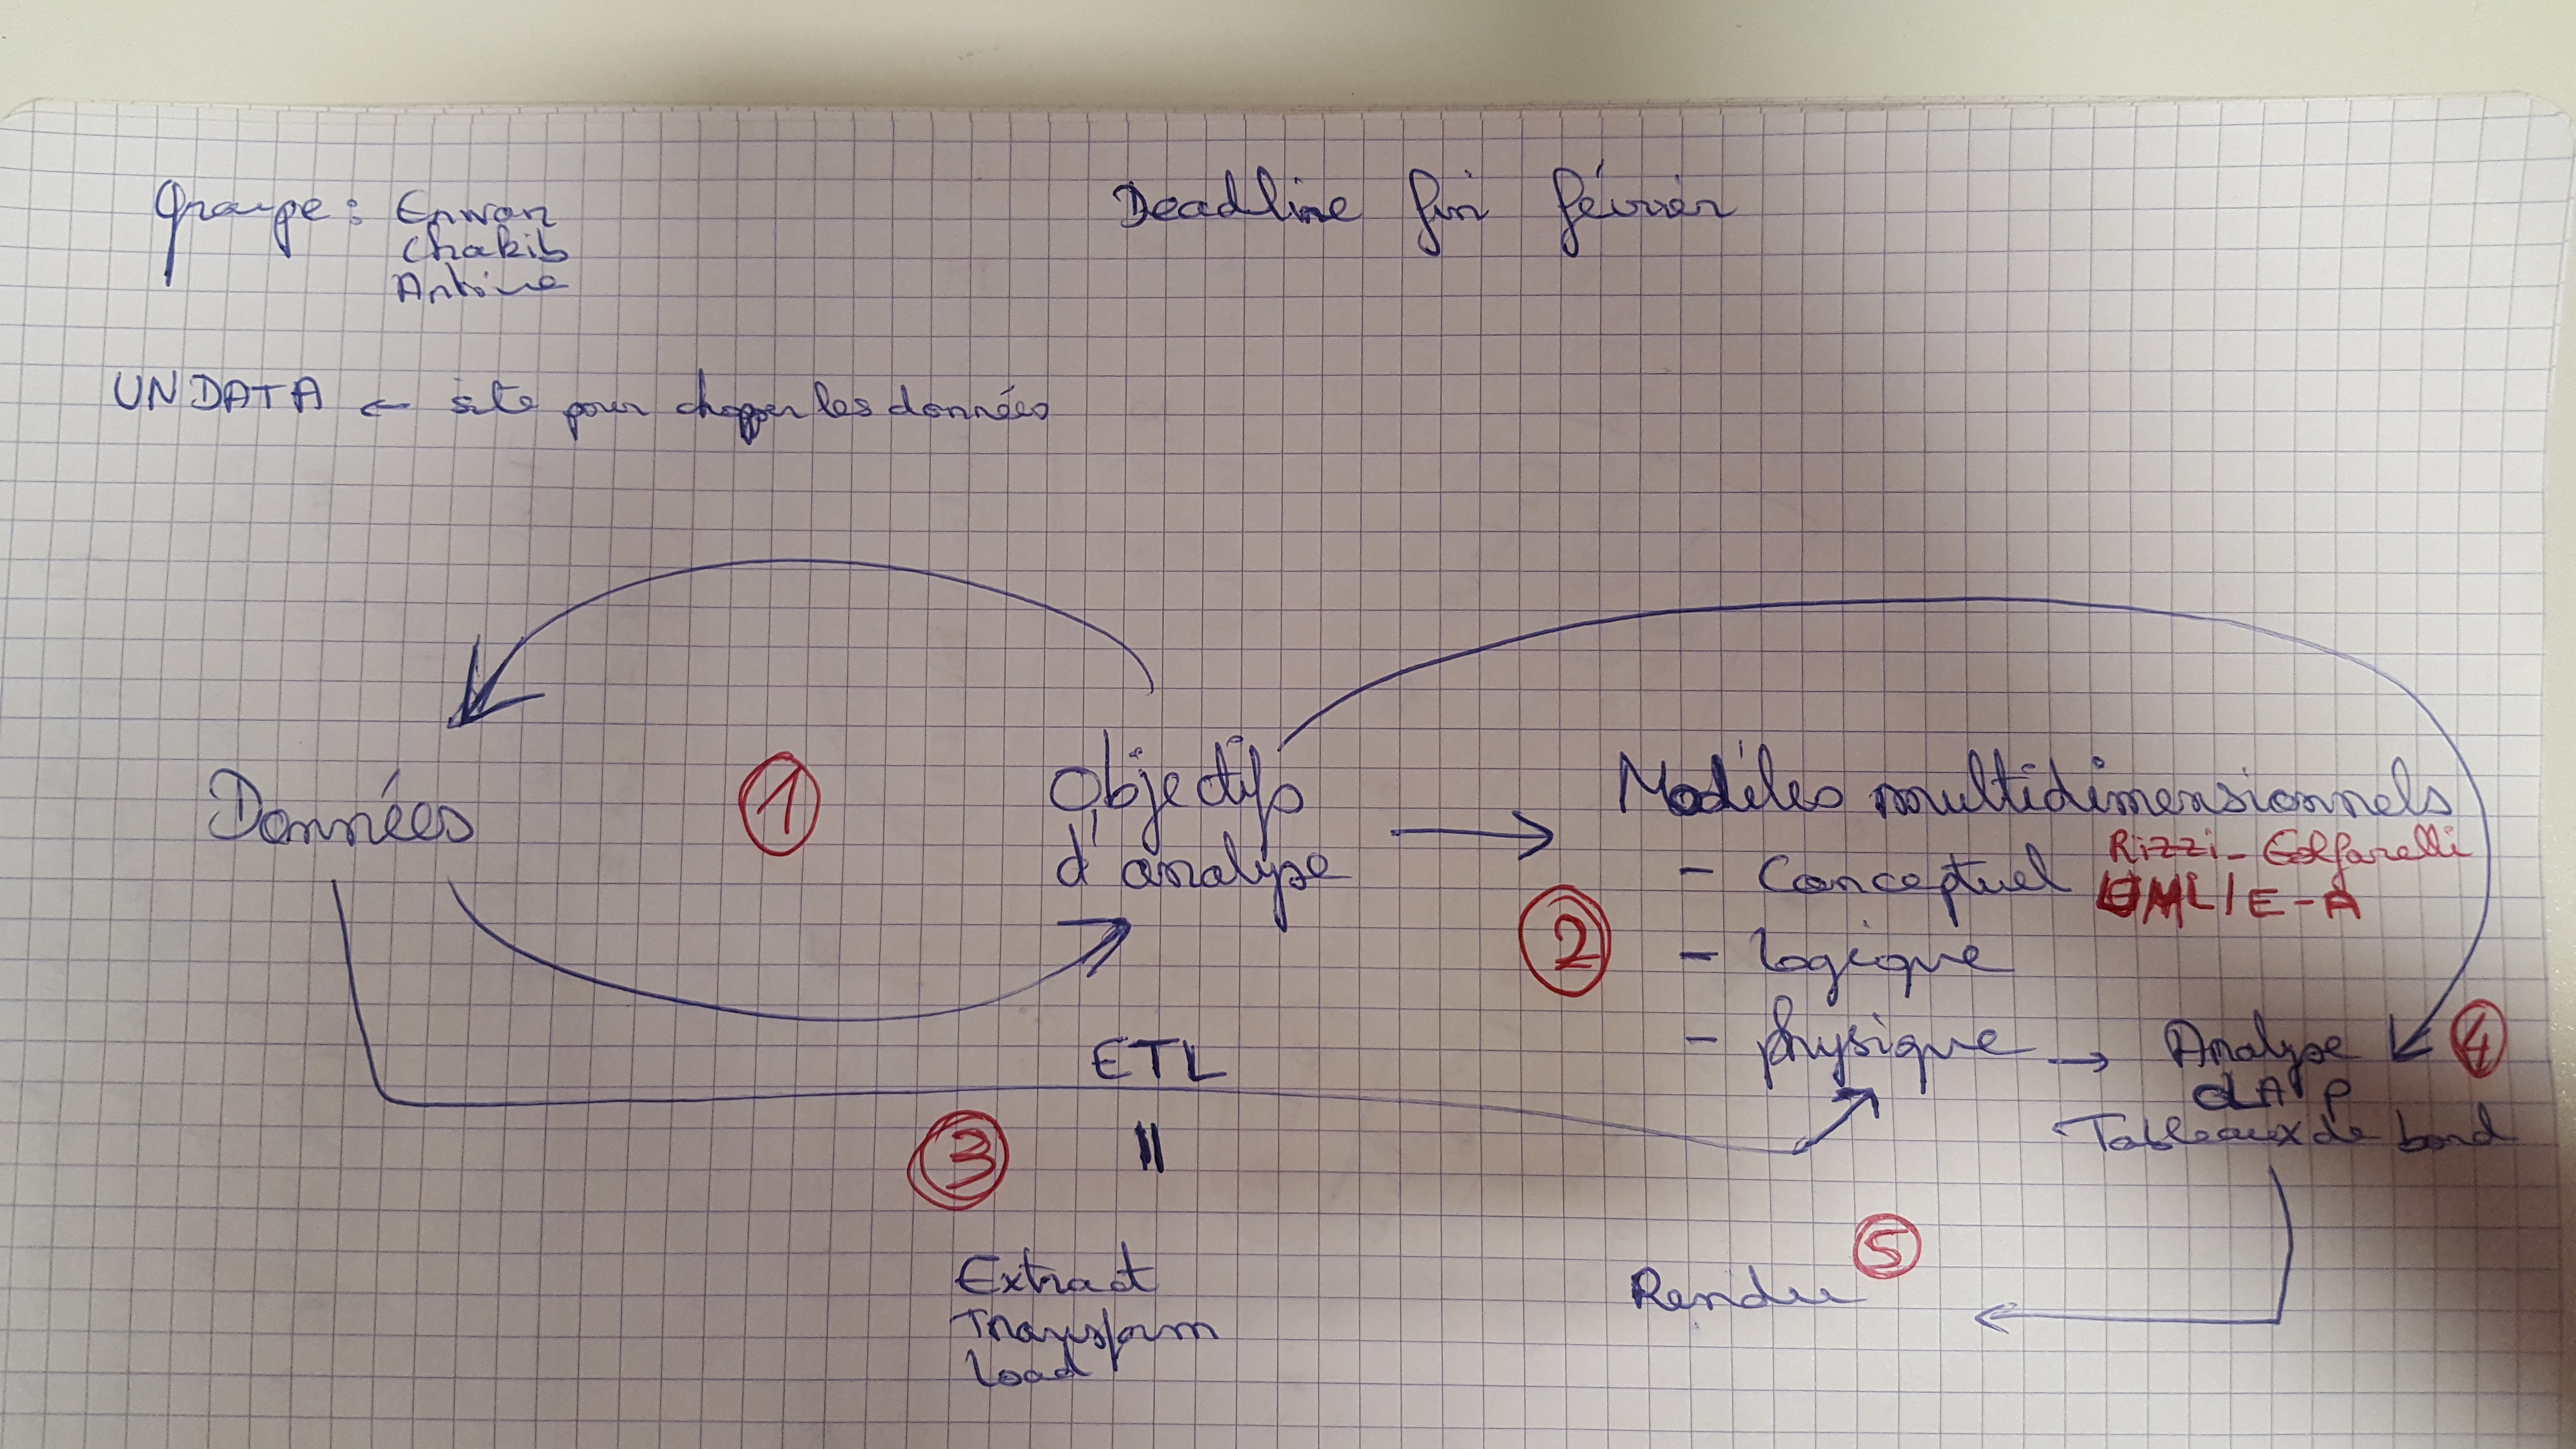 Groupe : Erwan
Chakib
Antoine
Deadline fin février
UNDATA ← site pour chopper les données
Données
1
Objectifs
d'analyse
→
Modèles multidimensionnels
- Conceptuel Rizzi-Golfarelli
UML/E-A
2
- logique
- physique → Analyse
4
OLAP
Tableaux de bord
ETL
3
=
Extract
Transform
Load
Rendu
5